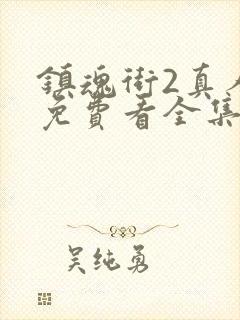 鎮魂街2真人
免費看全集
吴纯勇